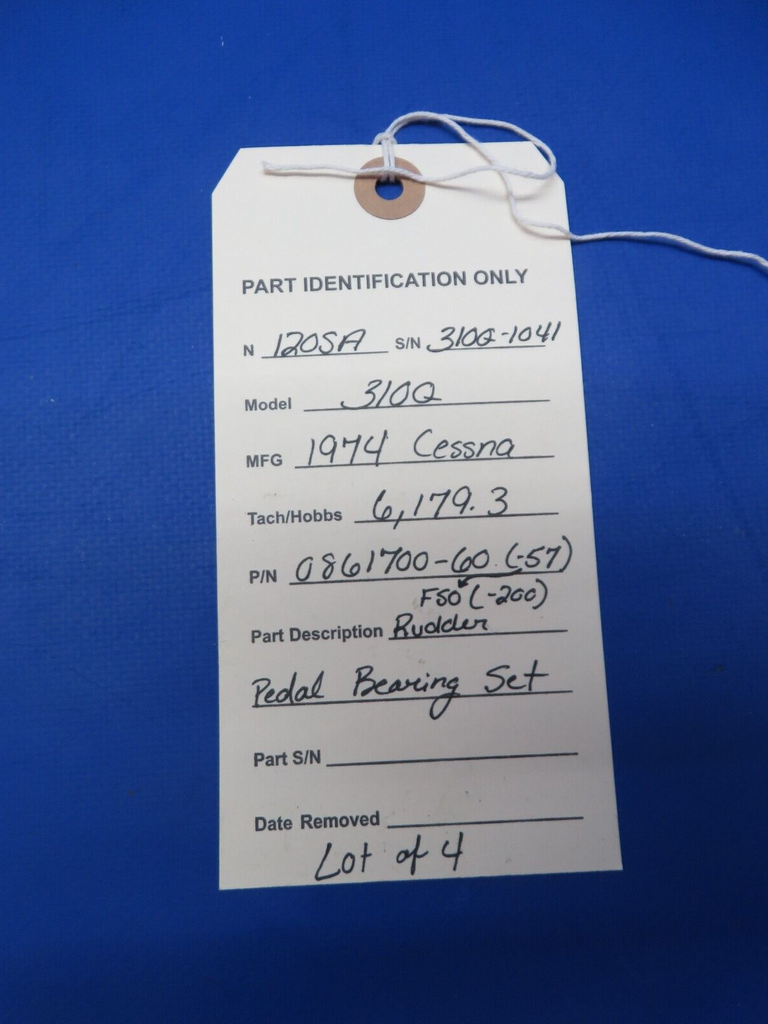 PART IDENTIFICATION ONLY
N 120SA S/N 310Q-1041
Model 310Q
MFG 1974 Cessna
Tach/Hobbs 6,179.3
P/N 0861700-60 (-57)
FSO (-200)
Part Description Rudder
Pedal Bearing Set
Part S/N
Date Removed
Lot of 4